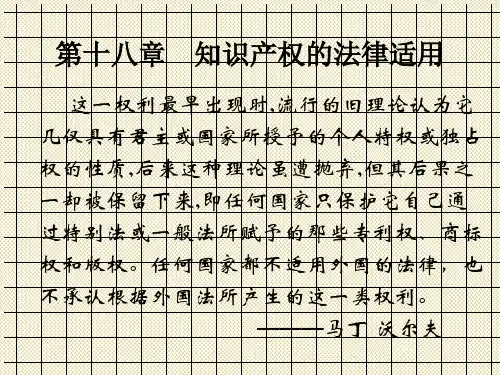 第十八章　知识产权的法律适用
这一权利最早出现时,流行的旧理论认为它
几仅具有君主或国家所授予的个人特权或独占
权的性质,后来这种理论虽遭抛弃,但其后果之
一却被保留下来,即任何国家只保护它自己通
过特别法或一般法所赋予的那些专利权、商标
权和版权。任何国家都不适用外国的法律，也
不承认根据外国法所产生的这一类权利。
———马丁 沃尔夫